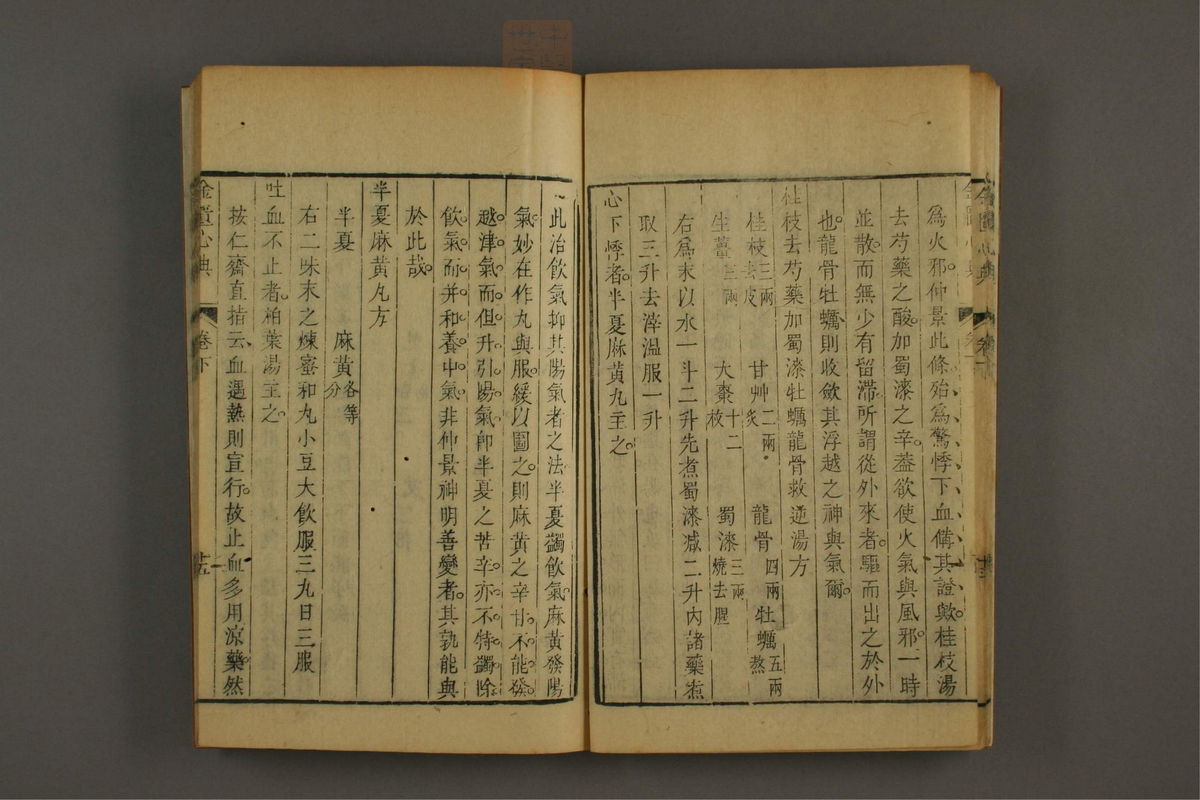 爲火邪仲景此條殆爲驚悸下血備其證歟桂枝湯
去芍藥之酸加蜀漆之辛葢欲使火氣與風邪一時
並散而無少有留滯所謂從外來者驅而出之於外
也龍骨牡蠣則收斂其浮越之神與氣爾
桂枝去芍藥加蜀漆牡蠣龍骨救逆湯方
桂枝三兩去皮 甘艸二兩炙 龍骨四兩 牡蠣五兩熬
生薑三兩 大棗十二枚 蜀漆三兩燒去腥
右爲末以水一斗二升先煮蜀漆减二升内諸藥煮
取三升去滓溫服一升
心下悸者半夏麻黄丸主之
此治飲氣抑其陽氣者之法半夏蠲飲氣麻黄發陽
氣妙在作丸與服緩以圖之則麻黄之辛甘不能發
越津氣而但升引陽氣卽半夏之苦辛亦不特蠲除
飲氣而并和養中氣非仲景神明善變者其孰能與
於此哉
半夏麻黄丸方
半夏 麻黄各等分
右二味末之煉蜜和丸小豆大飲服三丸日三服
吐血不止者柏葉湯主之
按仁齋直指云血遇熱則宣行故止血多用凉藥然
金匱心典 卷下 廿五